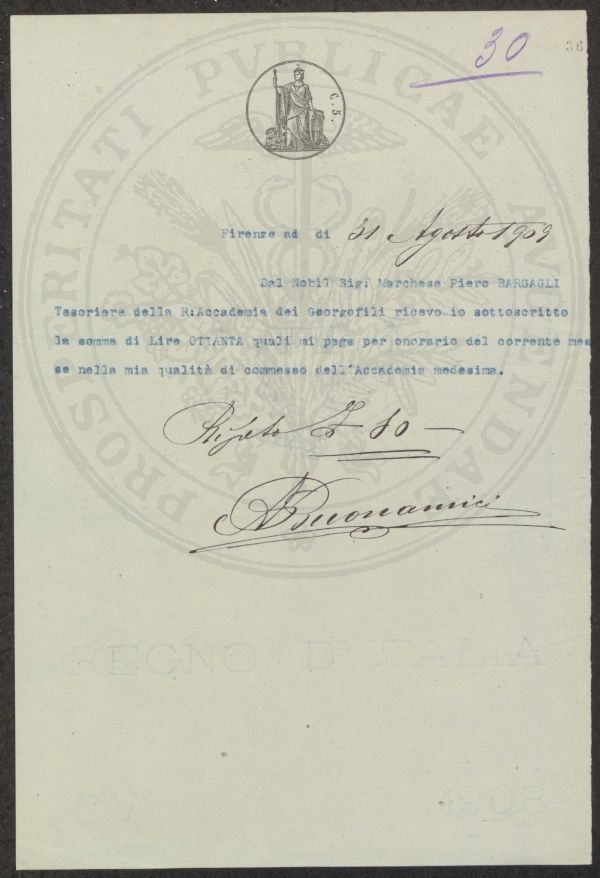 30
36
PROSPERITATI PVBLICAE AVGENDAE
C. 5.
Firenze ad di 31 Agosto 1909
Dal Nobil Sig: Marchese Piero BARGAGLI
Tesoriere della R:Accademia dei Georgofili ricevo io sottoscritto
la somma di Lire OTTANTA quali mi paga per onorario del corrente mes
se nella mia qualità di commesso dell'Accademia medesima.
£ 80
A Buonamici
REGNO D'ITALIA
CV 1908